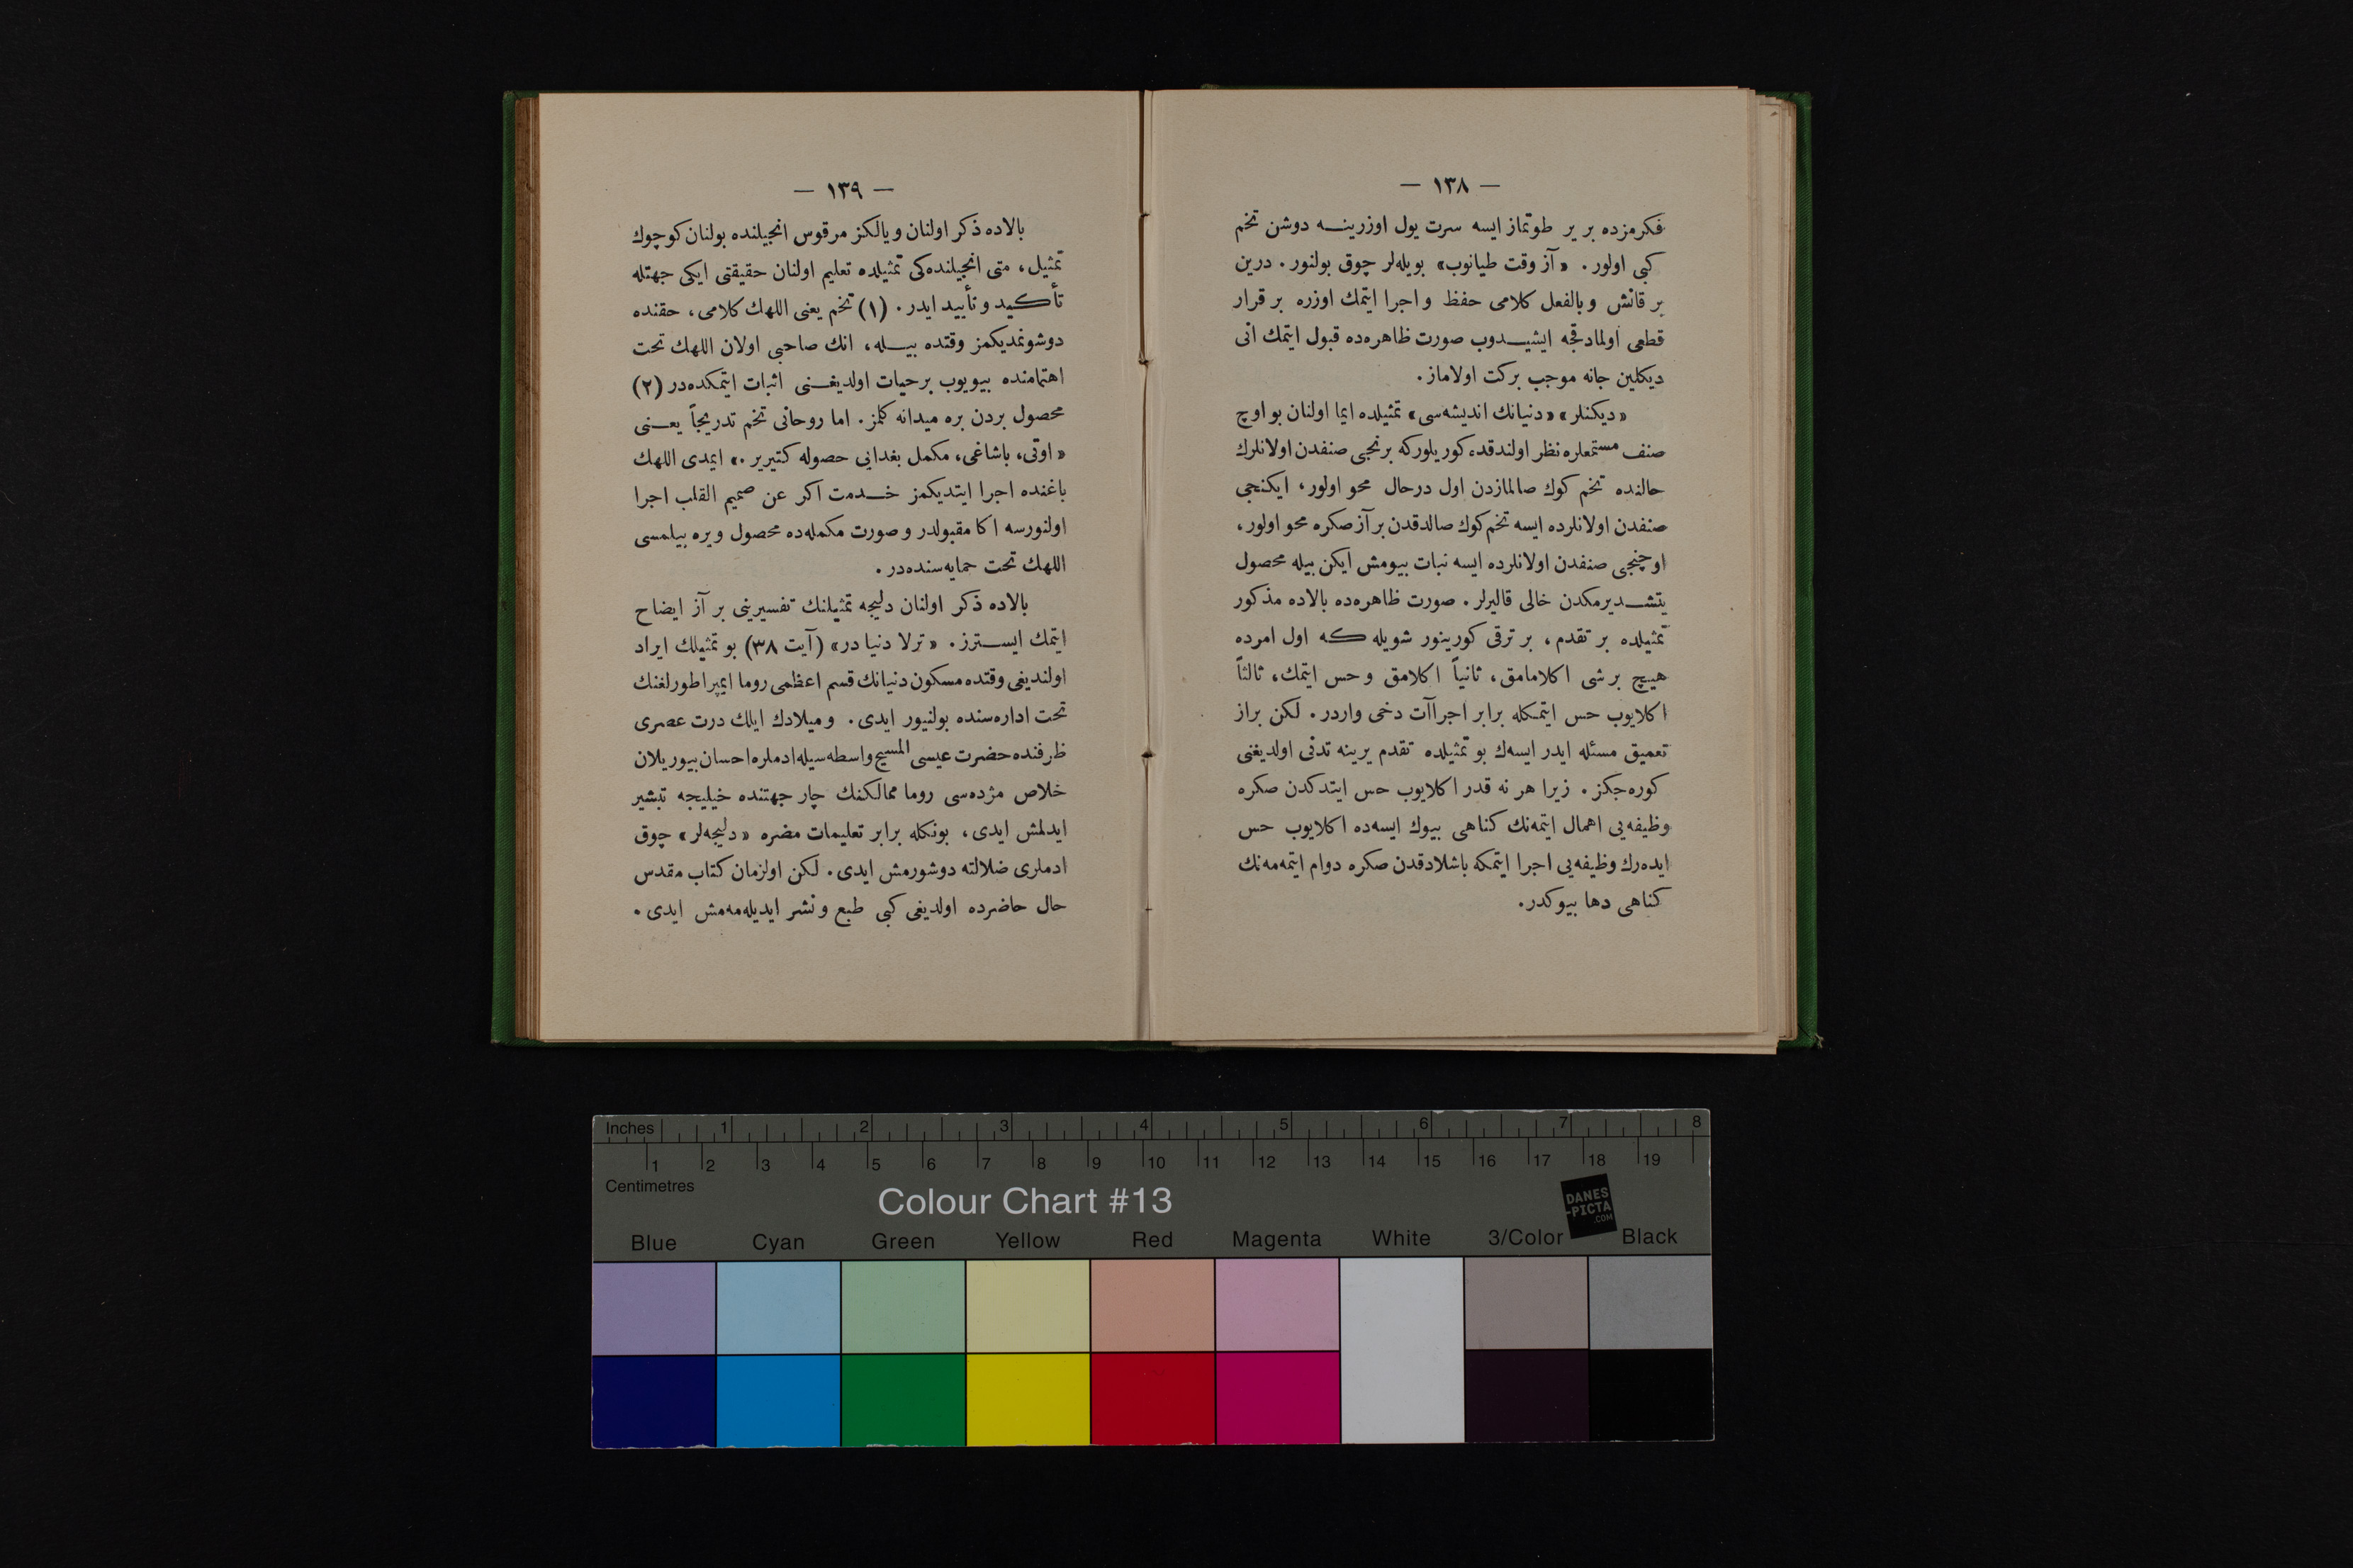 — ١٣٨ —
فكرمزده بر ير طوتماز ايسه سرت يول اوزرينه دوشن تخم
كبی اولور . «آز وقت طيانوب» بويله‌لر چوق بولنور . درين
بر قانش وبالفعل كلامی حفظ و اجرا ايتمك اوزره بر قرار
قطعی اولمادقجه ايشيدوب صورت ظاهره‌ده قبول ايتمك انی
ديكلين جانه موجب بركت اولاماز .
«ديكنلر» «دنيانك انديشه‌سی» تمثيلده ايما اولنان بو اوچ
صنف مستمعلره نظر اولندقده كوريلوركه برنجی صنفدن اولانلرك
حالنده تخم كوك صالمازدن اول درحال محو اولور ، ايكنجی
صنفدن اولانلرده ايسه تخم كوك صالدقدن بر آز صكره محو اولور ،
اوچنجی صنفدن اولانلرده ايسه نبات بيومش ايكن بيله محصول
يتشديرمكدن خالی قاليرلر . صورت ظاهره‌ده بالاده مذكور
تمثيلده بر تقدم ، بر ترقی كورينور شويله كه اول امرده
هيچ بر شی اكلامامق ، ثانياً اكلامق و حس ايتمك ، ثالثاً
اكلايوب حس ايتمكله برابر اجراآت دخی واردر . لكن براز
تعميق مسئله ايدر ايسه‌ك بو تمثيلده تقدم يرينه تدنی اولديغنی
كوره‌جكز . زيرا هر نه قدر اكلايوب حس ايتدكدن صكره
وظيفه‌يی اهمال ايتمه‌نك كناهی بيوك ايسه‌ده اكلايوب حس
ايده‌رك وظيفه‌يی اجرا ايتمكه باشلادقدن صكره دوام ايتمه‌مه‌نك
كناهی دها بيوكدر .
— ١٣٩ —
بالاده ذكر اولنان ويالكز مرقوس انجيلنده بولنان كوچوك
تمثيل ، متی انجيلنده‌كی تمثيلده تعليم اولنان حقيقتی ايكی جهتله
تأكيد و تأييد ايدر . (١) تخم يعنی اللهك كلامی ، حقنده
دوشونمديكمز وقتده بيله ، انك صاحبی اولان اللهك تحت
اهتمامنده بيويوب برحيات اولديغنی اثبات ايتمكده‌در (٢)
محصول بردن بره ميدانه كلمز . اما روحانی تخم تدريجاً يعنی
«اوتی ، باشاغی ، مكمل بغدايی حصوله كتيرير .» ايمدی اللهك
باغنده اجرا ايتديكمز خدمت اكر عن صميم القلب اجرا
اولنورسه اكا مقبولدر و صورت مكمله‌ده محصول ويره بيلمسی
اللهك تحت حمايه‌سنده‌در .
بالاده ذكر اولنان دليجه تمثيلنك تفسيرينی بر آز ايضاح
ايتمك ايسترز . «ترلا دنيا در» (آيت ٣٨) بو تمثيلك ايراد
اولنديغی وقتده مسكون دنيانك قسم اعظمی روما ايمپراطورلغنك
تحت اداره‌سنده بولنيور ايدی . وميلادك ايلك درت عصری
ظرفنده حضرت عيسی المسيح واسطه‌سيله ادملره احسان بيوريلان
خلاص مژده‌سی روما ممالكنك چار جهتنده خيليجه تبشير
ايدلمش ايدی ، بونكله برابر تعليمات مضره «دليجه‌لر» چوق
ادملری ضلالته دوشورمش ايدی . لكن اولزمان كتاب مقدس
حال حاضرده اولديغی كبی طبع ونشر ايديله‌مه‌مش ايدی .
Inches 1 2 3 4 5 6 7 8
1 2 3 4 5 6 7 8 9 10 11 12 13 14 15 16 17 18 19
Centimetres
Colour Chart #13
DANES
-PICTA
.COM
Blue Cyan Green Yellow Red Magenta White 3/Color Black